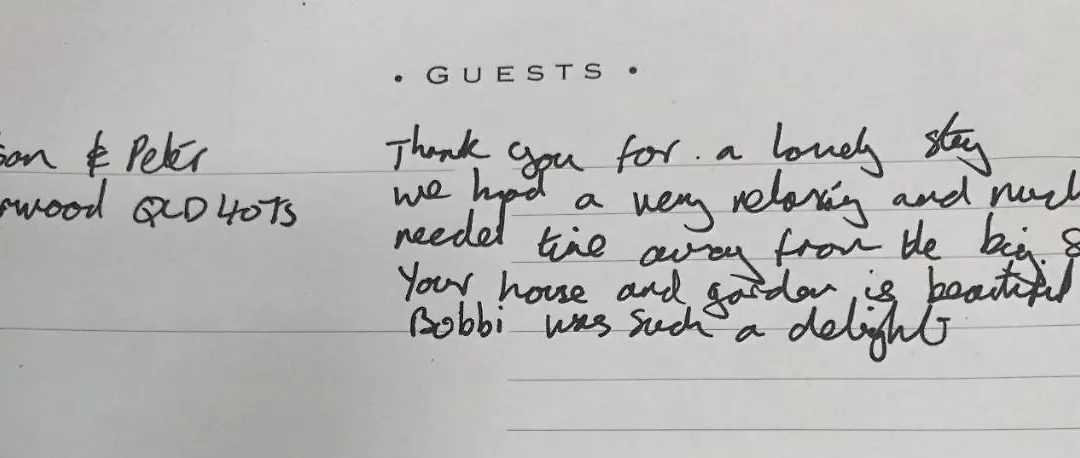 • GUESTS •
son & Peter
rwood QLD 4075
Thank you for a lovely stay
we had a very relaxing and much
needed time away from the big
Your house and garden is beautiful
Bobbi was such a delight